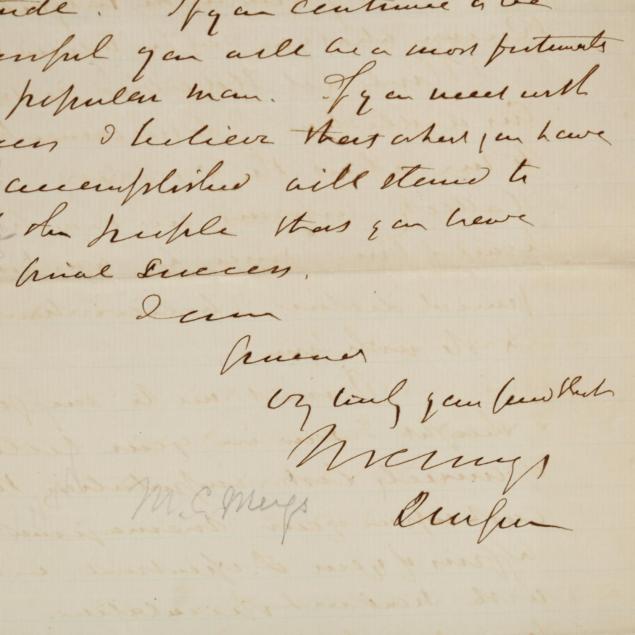 If you continue
you will be a most fortunate
popular man. If you meet with
I believe that what you have
accomplished will stand to
people that you have
final success.
I am
General
Vy truly your
M C Meigs
M. C. Meigs